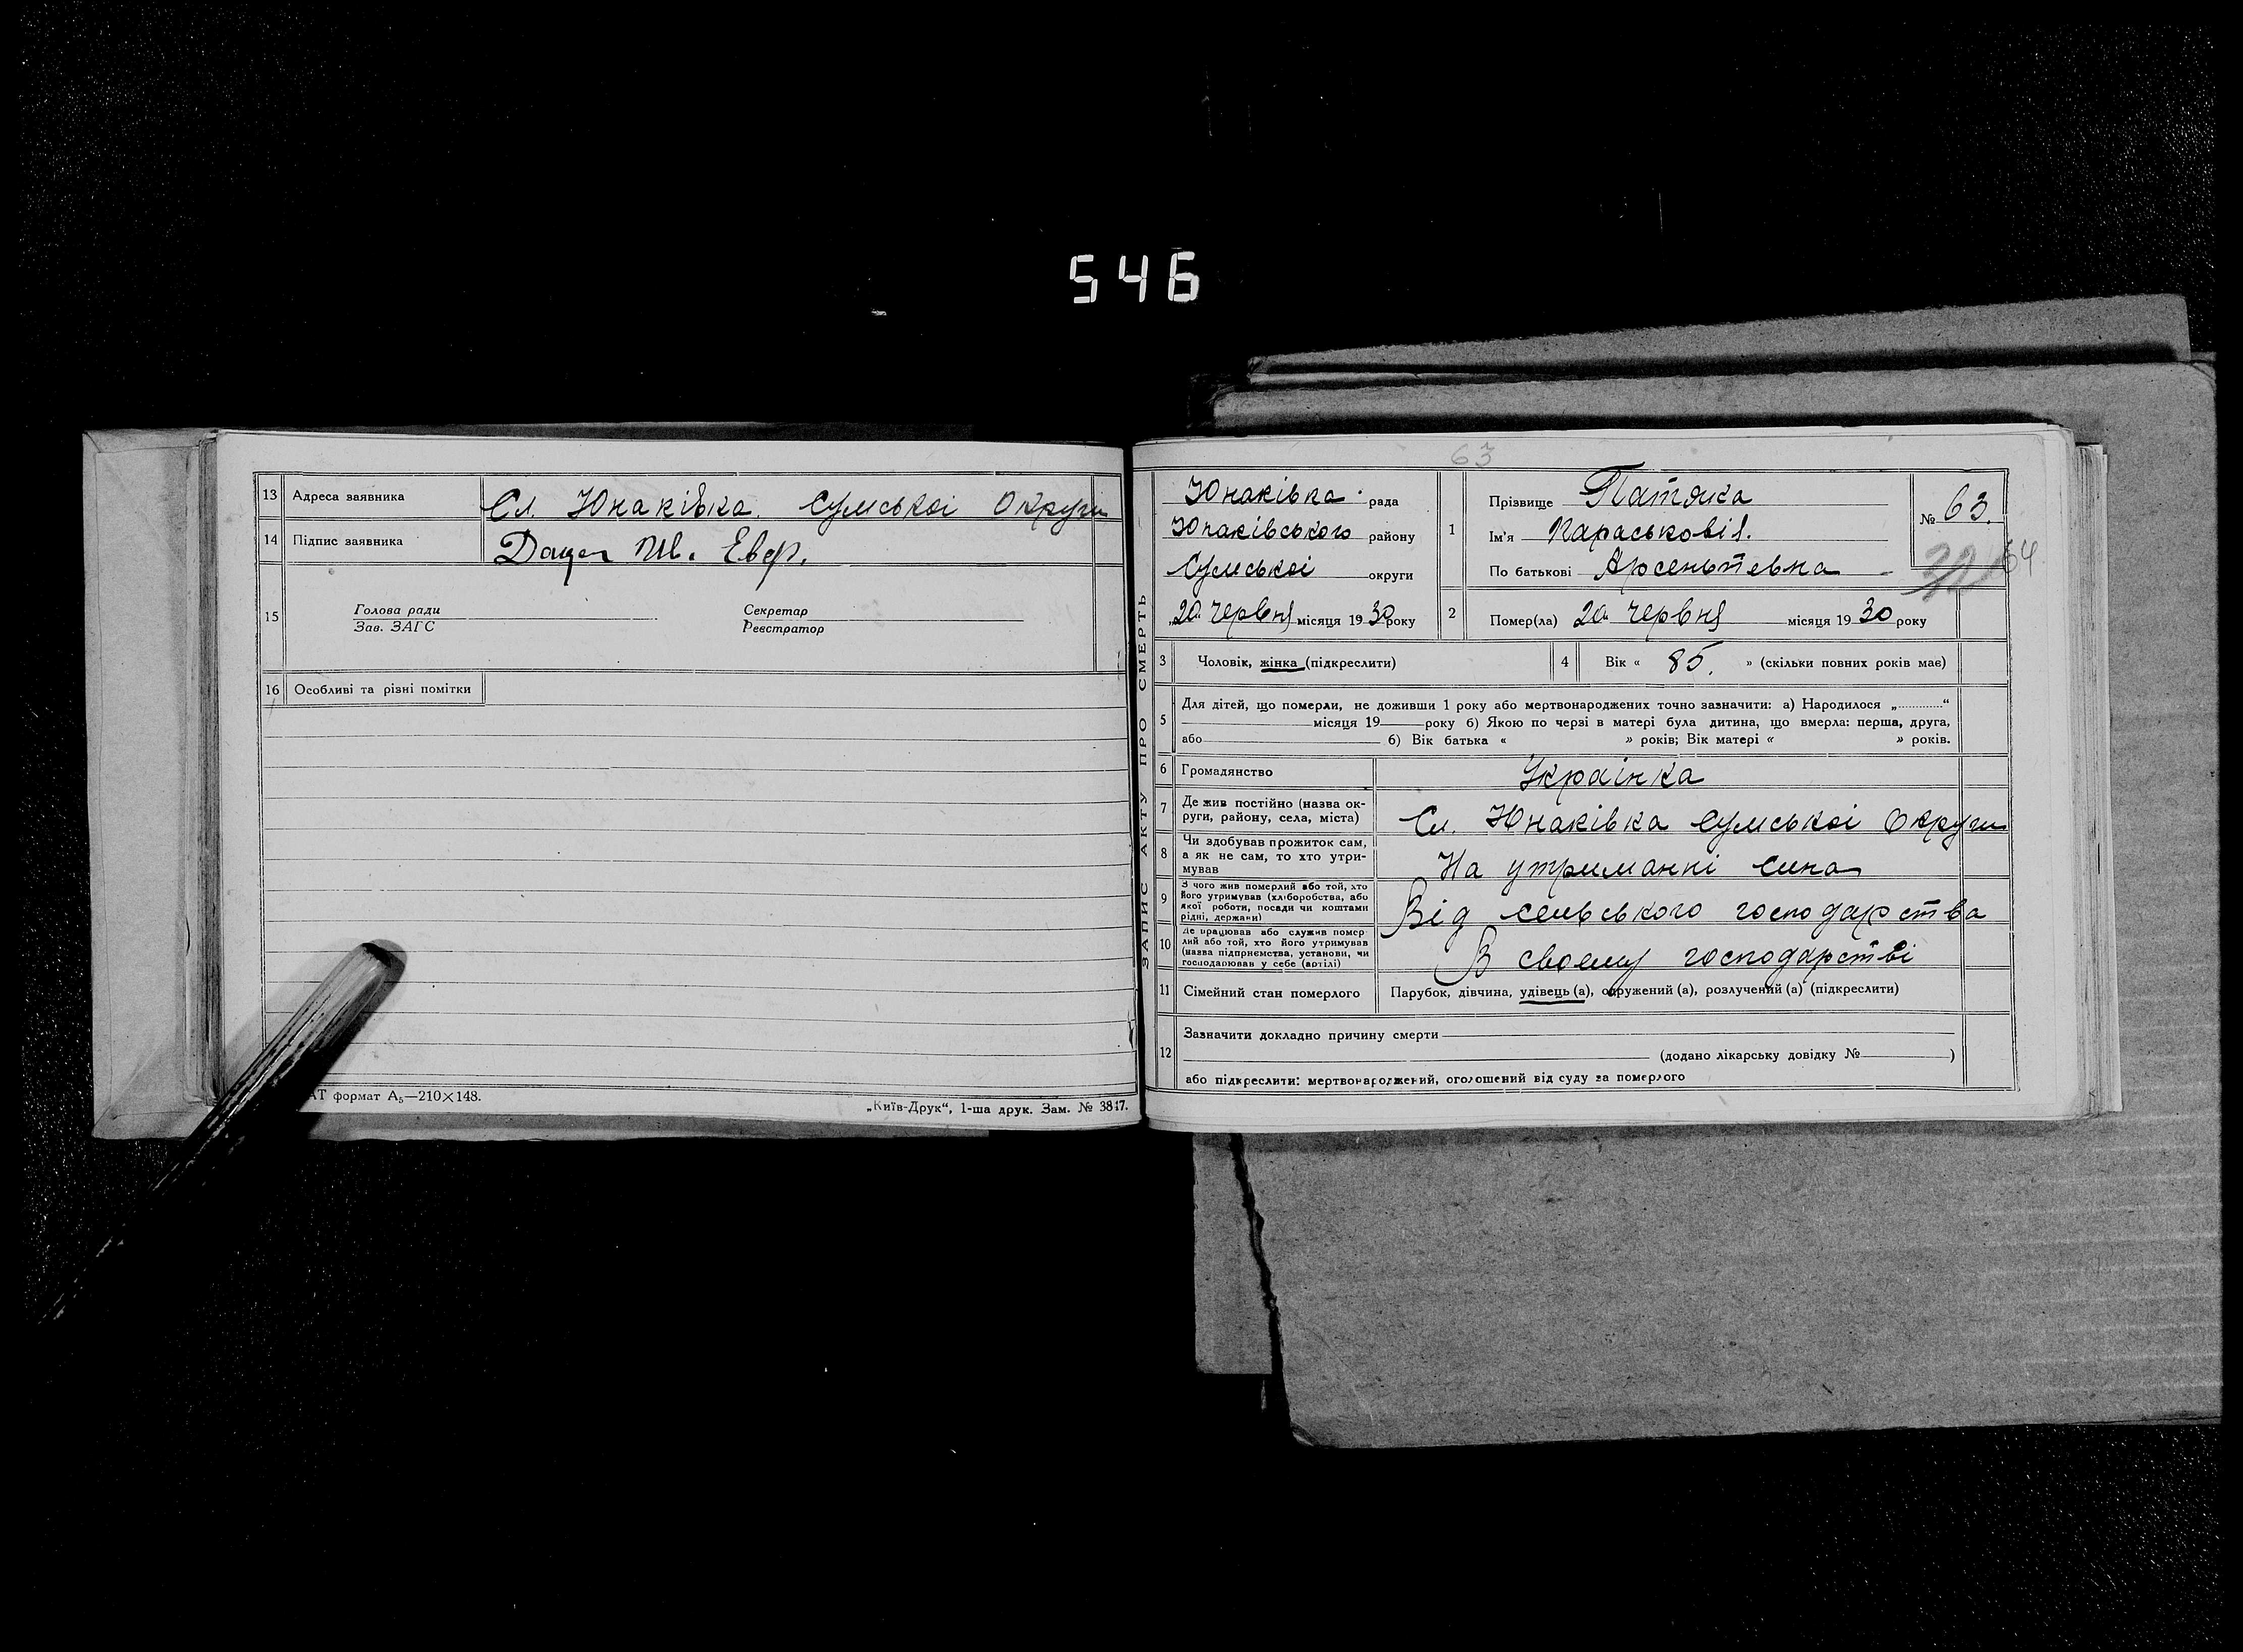 546
13 Адреса заявника Сл. Юнаківка. Сумської Округи
14 Підпис заявника Ів. Евф.
15 Голова ради Секретар
Зав. ЗАГС Реєстратор
16 Особливі та різні помітки
АТ формат А₅—210×148.
„Київ-Друк“, 1-ша друк. Зам. № 3847.
63
ЗАПИС АКТУ ПРО СМЕРТЬ
Юнаківка рада
Юнаківського району
Сумської округи
„20“ Червня місяця 1930 року
1 Прізвище Патяка
Ім'я Параськовія.
По батькові Арсеньтевна
№ 63.
64
2 Помер(ла) 20 червня місяця 1930 року
3 Чоловік, жінка (підкреслити)
4 Вік « 85. » (скільки повних років має)
5 Для дітей, що померли, не доживши 1 року або мертвонароджених точно зазначити: а) Народилося „..........“
місяця 19 року б) Якою по черзі в матері була дитина, що вмерла: перша, друга,
або б) Вік батька « » років; Вік матері « » років.
6 Громадянство Українка
7 Де жив постійно (назва ок-
руги, району, села, міста) Сл. Юнаківка Сумської Округи
8 Чи здобував прожиток сам,
а як не сам, то хто утри-
мував На утриманні сина
9 З чого жив померлий або той, хто
його утримував (хліборобства, або
якої роботи, посади чи коштами
рідні, держави) Від сельського господарства
10 Де працював або служив помер
лий або той, хто його утримував
(назва підприємства, установи, чи
господарював у себе (артілі) В своему господарстві
11 Сімейний стан померлого Парубок, дівчина, удівець (а), одружений (а), розлучений (а) (підкреслити)
12 Зазначити докладно причину смерти
(додано лікарську довідку № )
або підкреслити: мертвонароджений, оголошений від суду за померлого